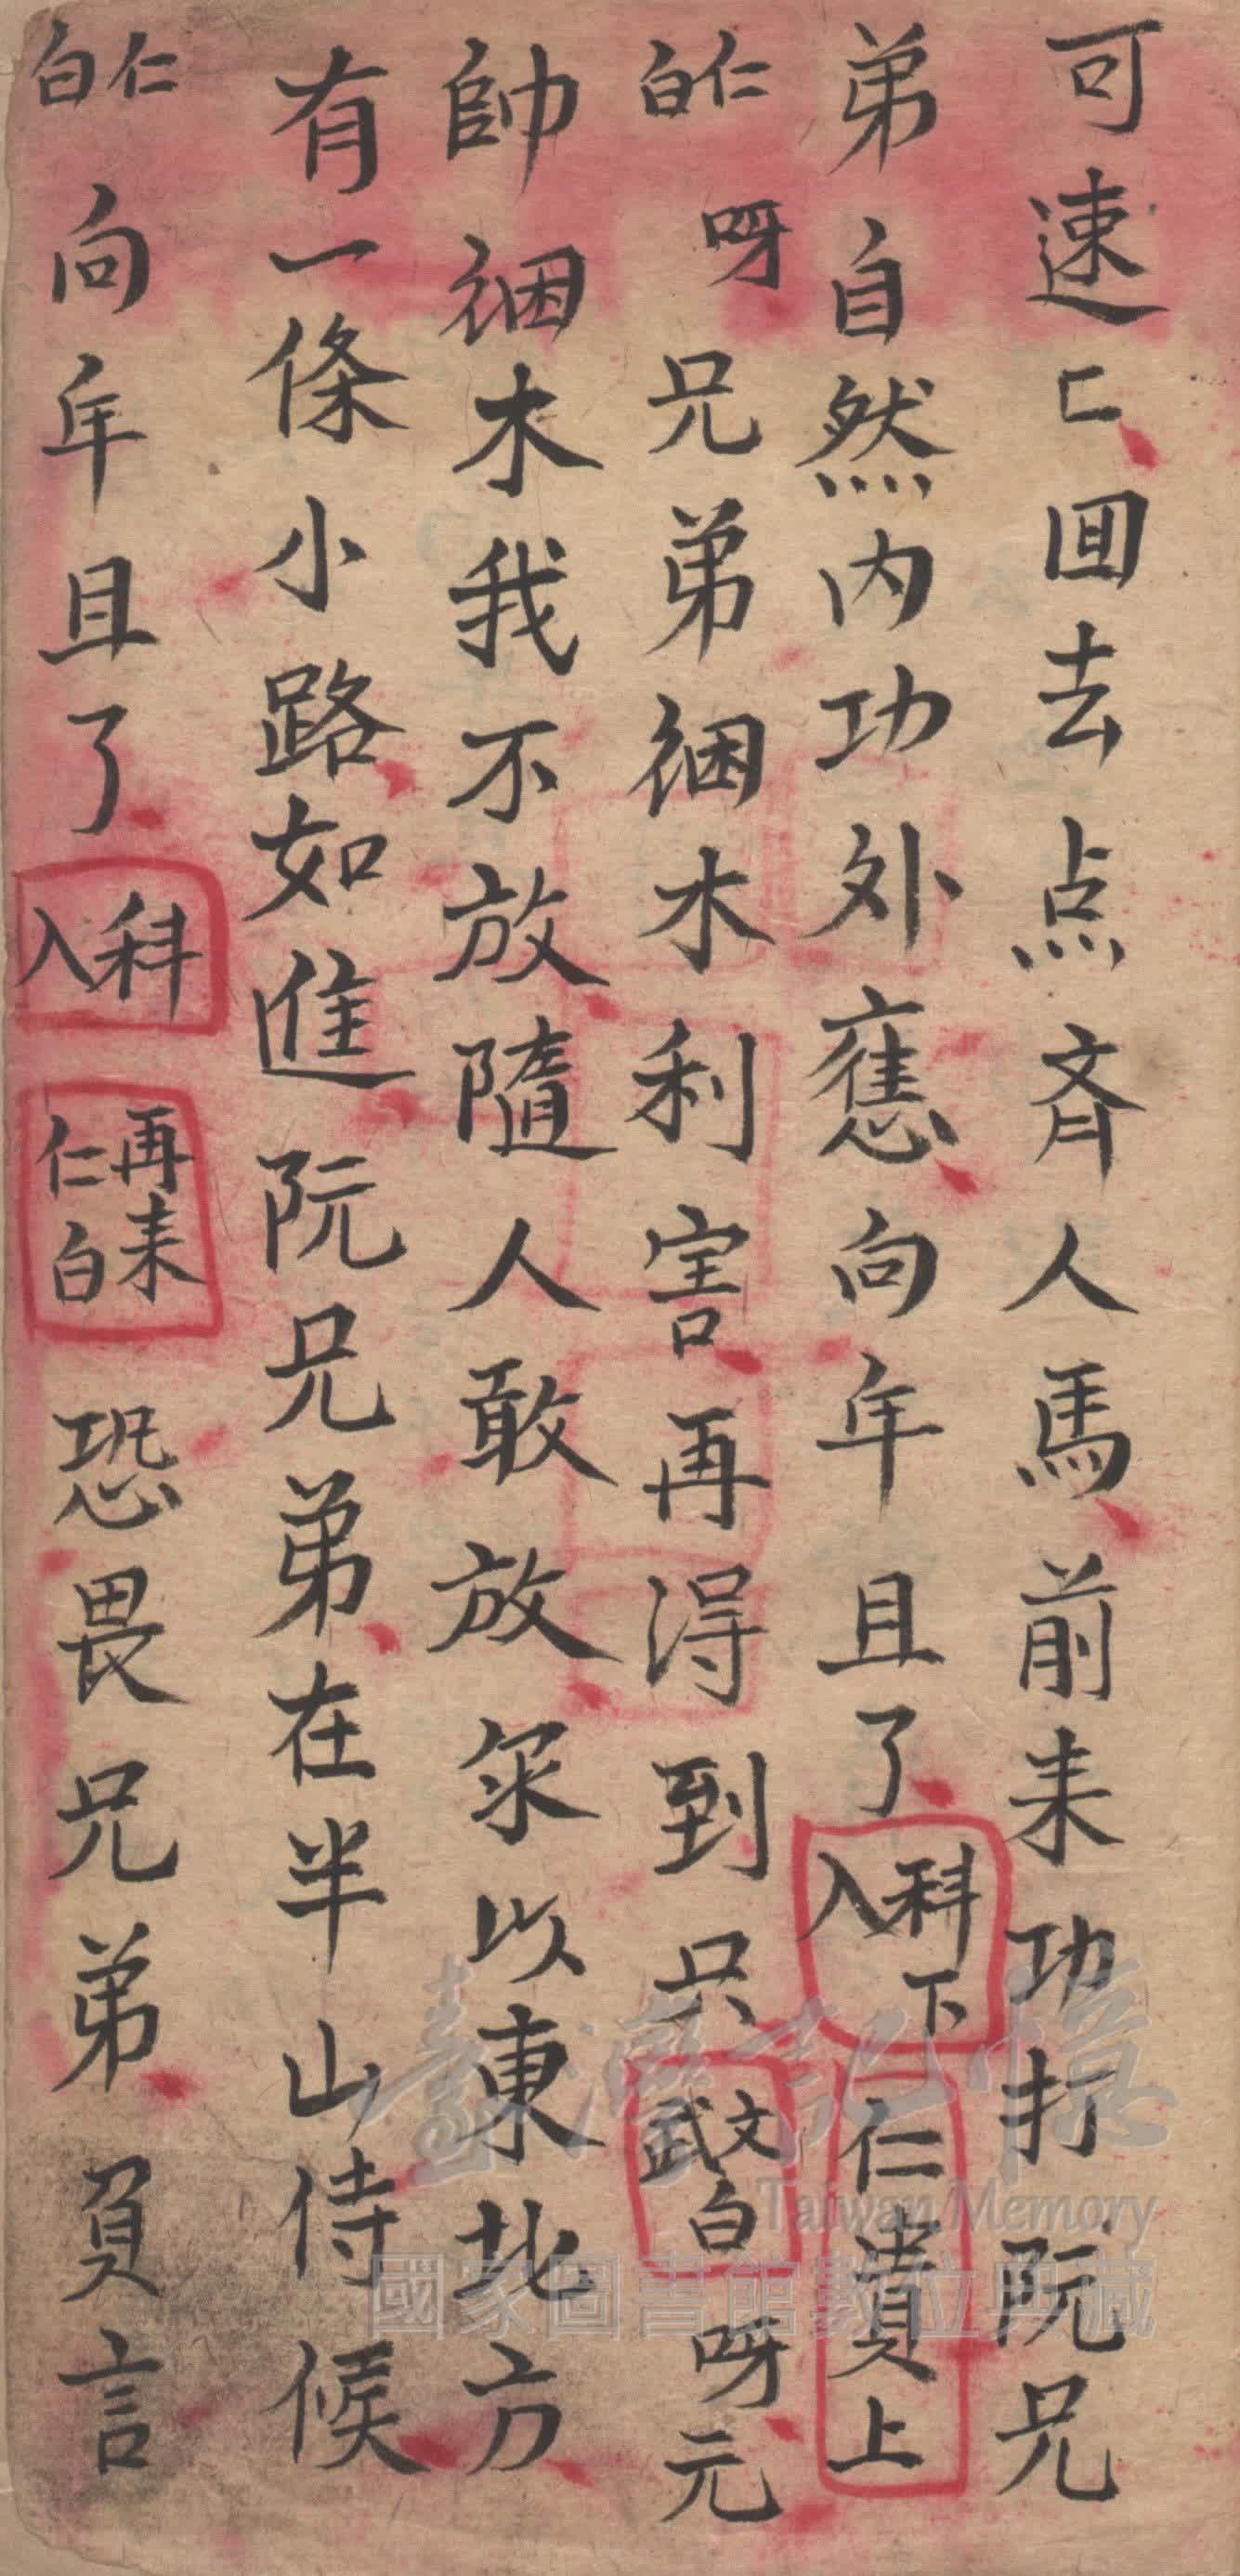 可速匸囬去点斉人馬前来功打阮兄
弟自然内功外應向年且了科下入仁貴上
仁白呀兄弟綑木利害再得到只文武白呀元
帥綑木我不放隨人敢放衆以東北方
有一條小路如進阮兄弟在半山侍候
仁白向年且了科入再来仁白恐畏兄弟負言
臺灣記憶
Taiwan Memory
國家圖書館數位典藏